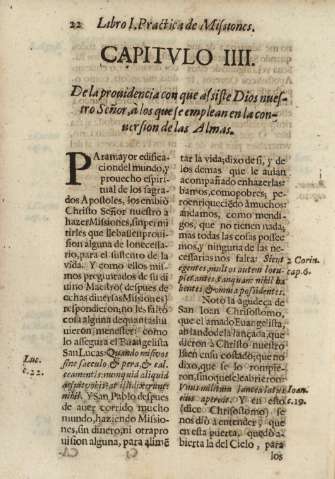 22 Libro I. Practica de Missiones.
CAPITVLO IIII.
De la prouidencia con que assiste Dios nues-
tro Señor, à los que se emplean en la con-
uersion de las Almas.
PAra mayor edifica-
cion del mundo, y
prouecho espiri-
tual de los sagra-
dos Apostoles, los embiò
Christo Señor nuestro a
hazer Missiones, sin permi-
tirles que lleuassen proui-
sion alguna de lo necessa-
rio, para el sustento de la
vida. Y como ellos mis-
mos preguntados de su di
uino Maestro (despues de
echas diuersas Missiones)
respondieron, no les faltò
cosa alguna de quantas hu-
uieron menester: como
lo assegura el Euangelista
San Lucas: Quando misi vos
sine sacculo & pera, & cal-
ceamentis: nunquid aliquid
defuit vobis? at illi dixerunt
nihil. Y San Pablo despues
de auer corrido mucho
mundo, haziendo Missio-
nes, sin dinero, ni otra pro
uision alguna, para alimẽ
Luc.
c. 22.
tar la vida; dixo de sí, y de
los demas que le auian
acompañado en hazerlas:
bamos, como pobres, pe-
ro enriqueciẽdo à muchos:
andamos, como mendi-
gos, que no tienen nada;
mas todas las cosas possee-
mos, y ninguna de las ne-
cessarias nos falta: Sicut
egentes, multos autem locu-
pletantes: tanquam nihil ha
bentes, & omnia possidentes.
2 Corin.
cap. 6.
Notò la agudeça de
San Ioan Chrisostomo,
que el amado Euangelista,
ablando de la lançada, que
dieron à Christo nuestro
Bien en su costado; que no
dixo, que se lo rompie-
ron, sino que se le abrieron
Vnus militum lancea latus
eius aperuit. Y en esto
(dice Chrisostomo) se
nos diò a entender, que
en esta puerta, quedò a-
bierta la del Cielo, para
Ioan.
c. 19.
los